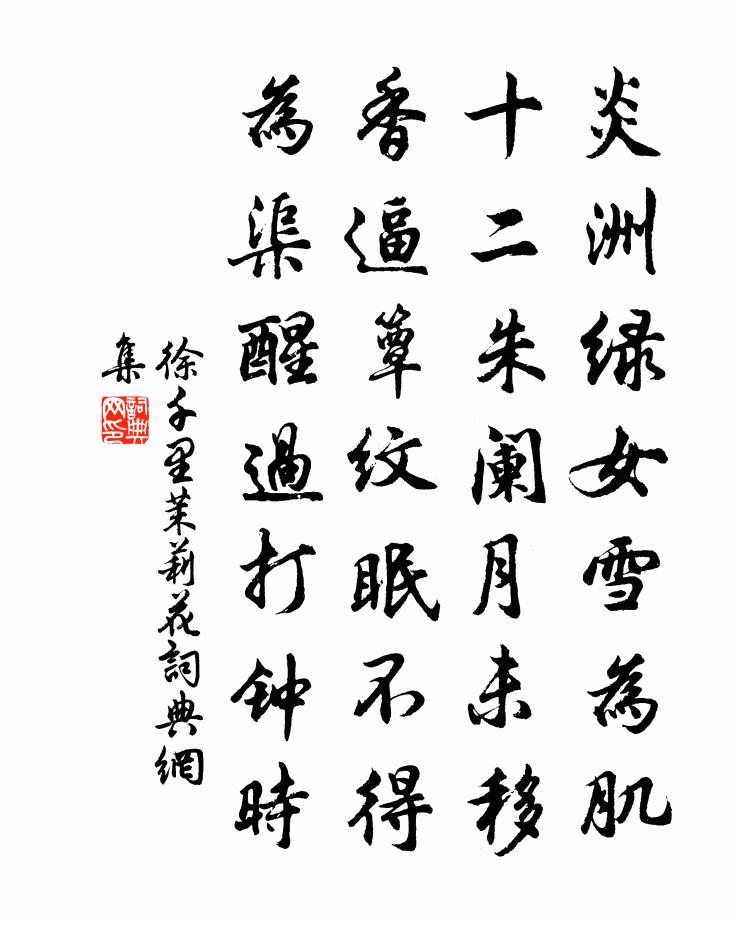 炎洲绿女雪為肌
十二朱阑月未移
香逼簟紋眠不得
為渠醒過打钟時
徐千里茉莉花詞典網
集
詞典
网印